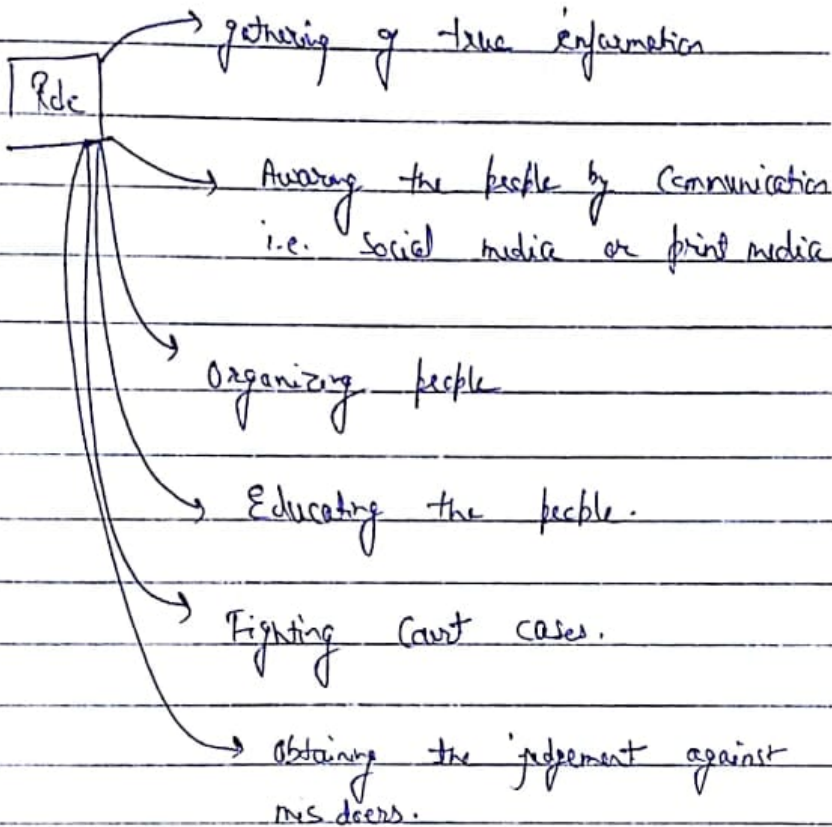 gathering of true information
Role
Awaring the people by Communication
i.e. Social media or print media
Organizing people
Educating the people.
Fighting Court cases.
Obtaining the judgement against
misdoers.